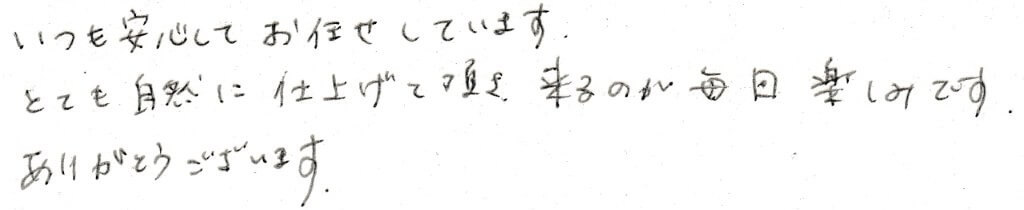 いつも安心してお任せしています.
とても自然に仕上げて頂き 来るのが毎日楽しみです.
ありがとうございます.